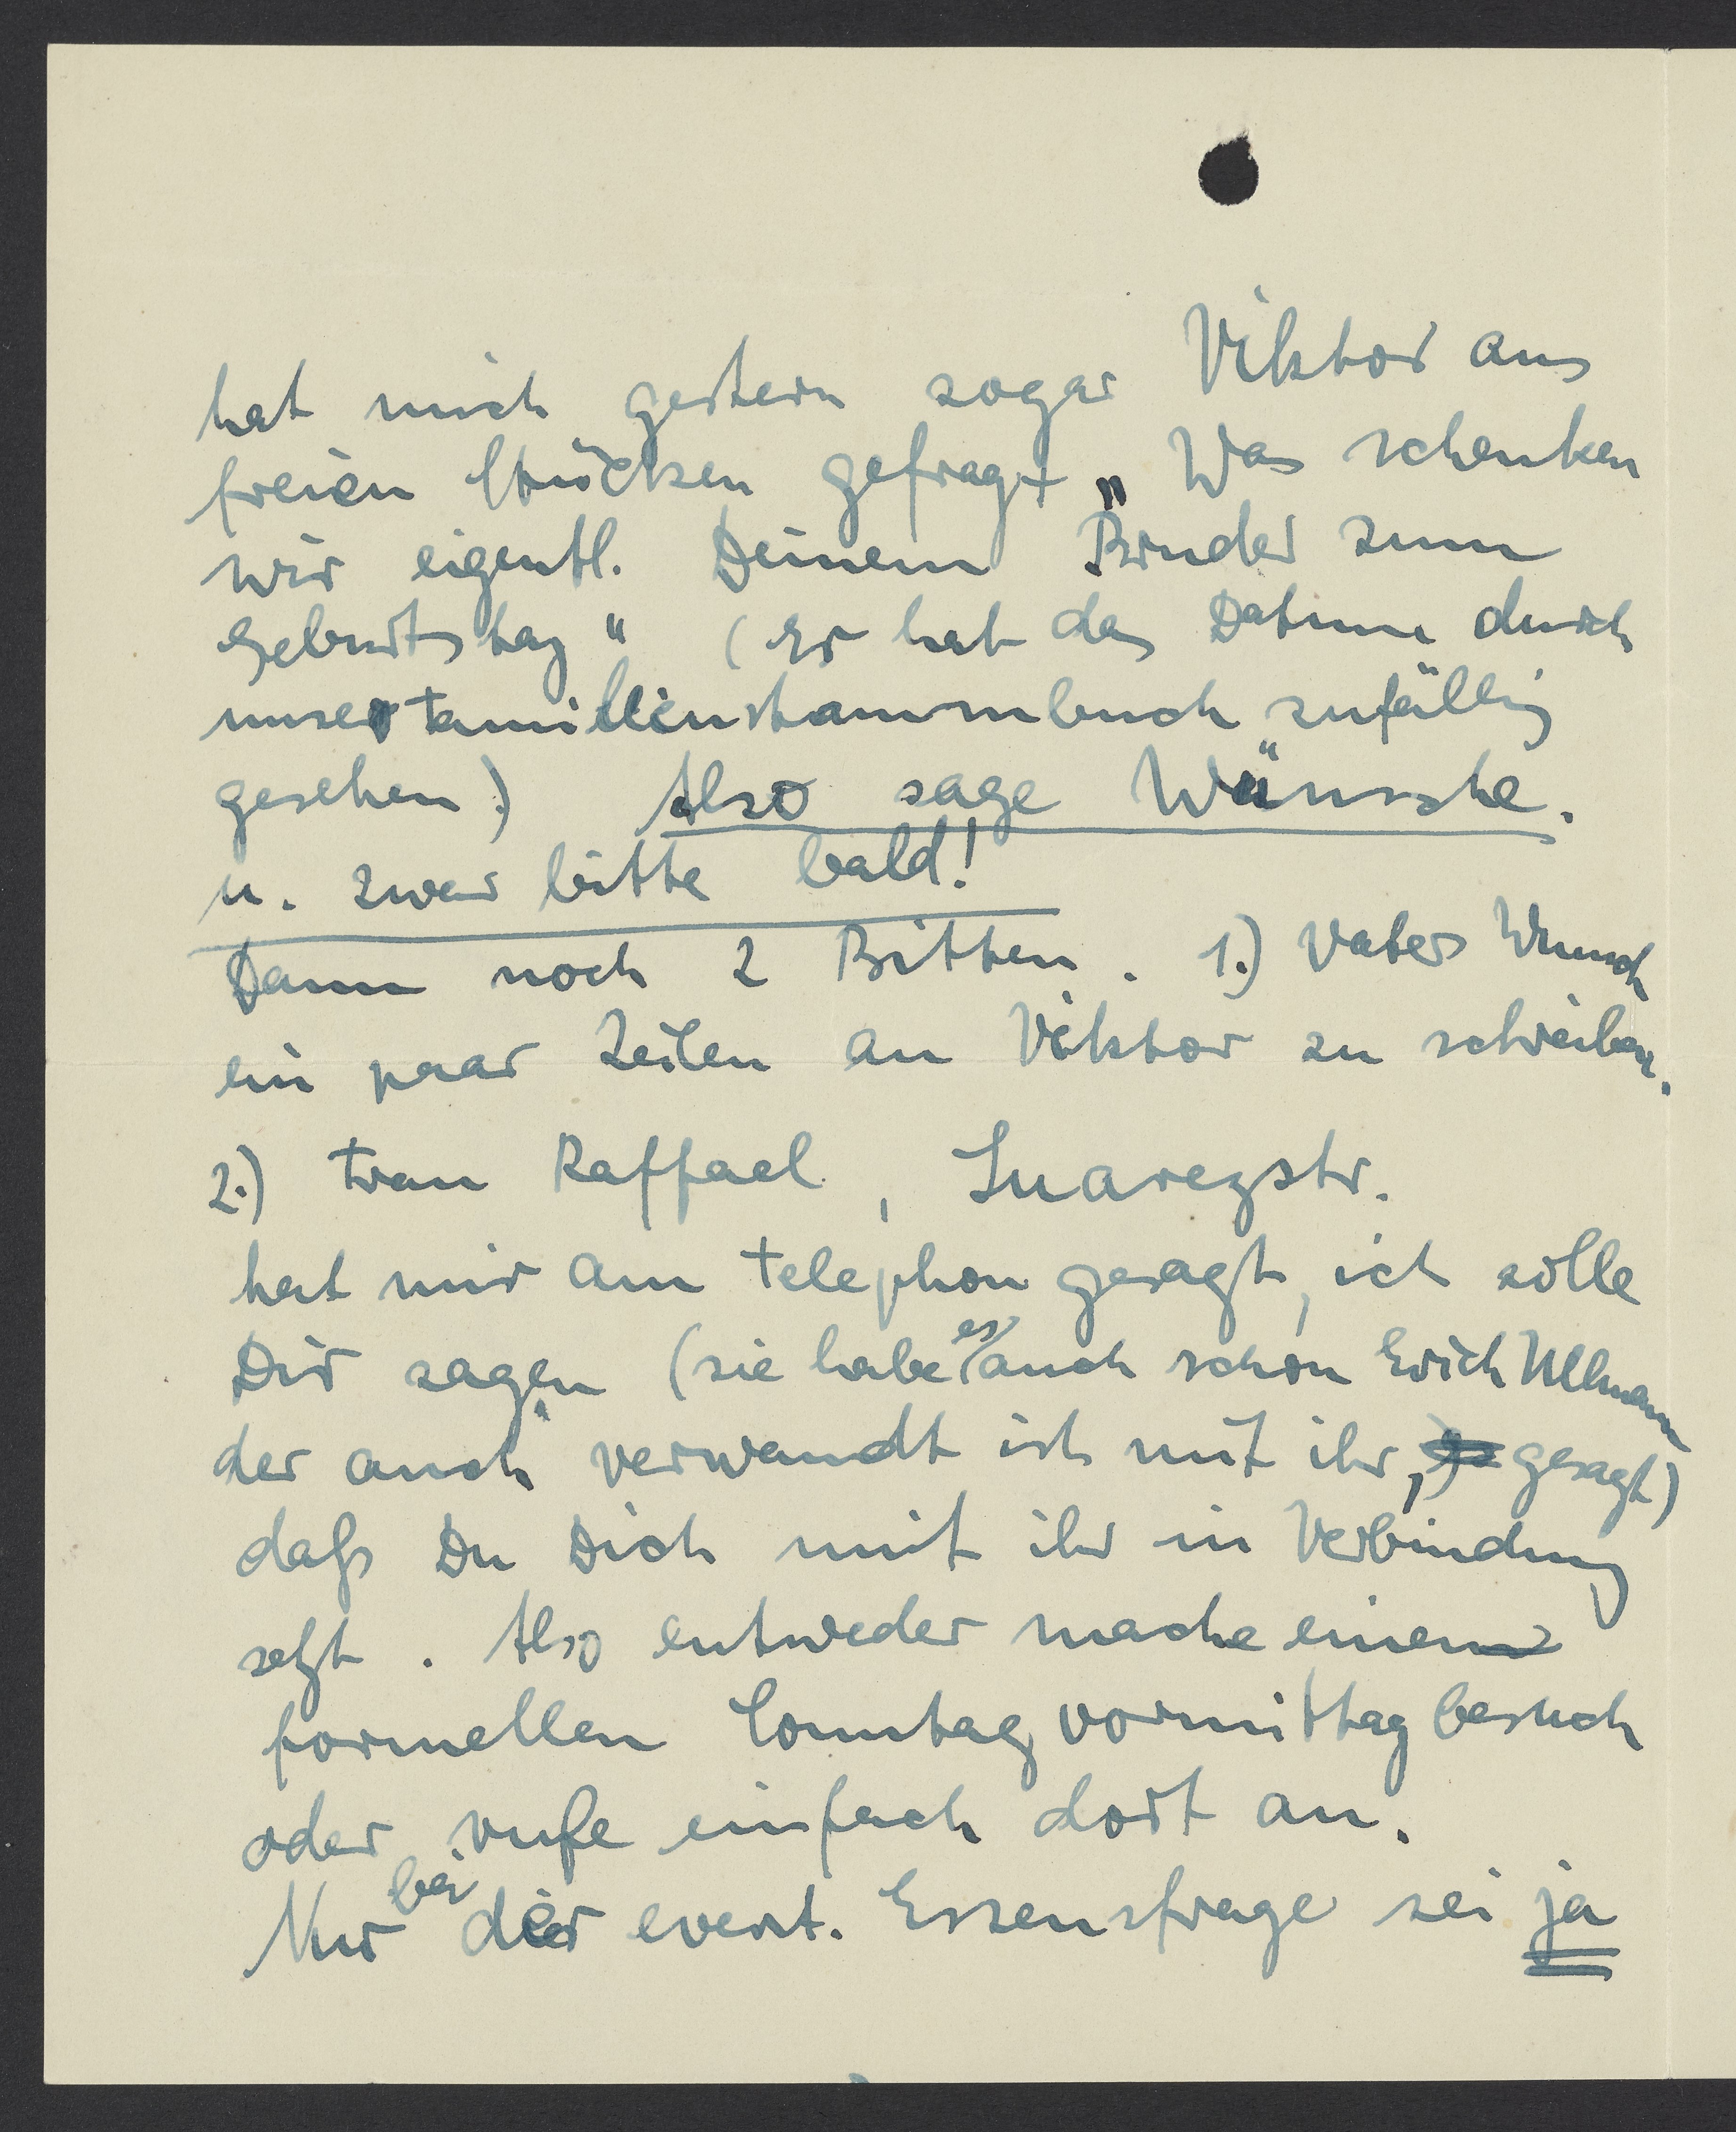 hat mich gestern sogar Viktor aus
freien Stücken gefragt „Was schenken
wir eigentl. Deinem Bruder zum
Geburtstag“ (Er hat das Datum durch
unser Familienstammbuch zufällig
gesehen) Also sage Wünsche.
u. zwar bitte bald!
Dann noch 2 Bitten. 1.) Vaters Wunsch
ein paar Zeilen an Viktor zu schreiben.
2.) Frau Raffael, Suarezstr.
hat mir am Telephon gesagt, ich solle
Dir sagen (sie habe es auch schon Erich Ullmann
der auch verwandt ist mit ihr, gesagt)
daß Du Dich mit ihr in Verbindung
setzt. Also entweder mache einen
formellen Sonntagvormittagbesuch
oder rufe einfach dort an.
Nur bei der event. Essensfrage sei ja